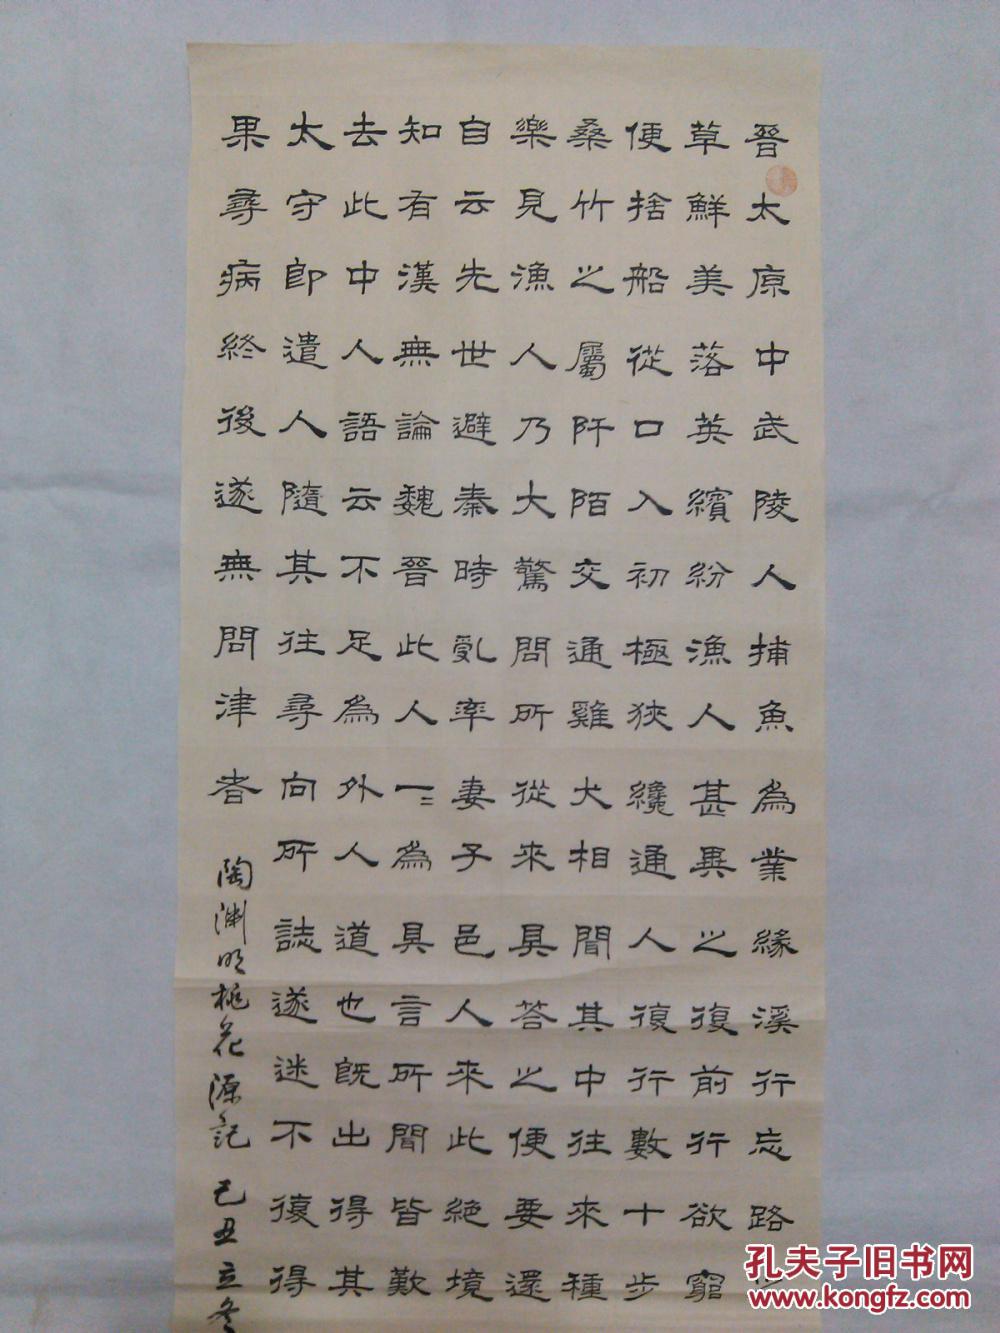 晉太原中武陵人捕魚為業緣溪行忘路
草鮮美落英繽紛漁人甚異之復前行欲窮
便捨船從口入初極狹纔通人復行數十步
桑竹之屬阡陌交通雞犬相聞其中往來種
樂見漁人乃大驚問所從來具答之便要還
自云先世避秦時亂率妻子邑人來此絕境
知有漢無論魏晉此人一二為具言所聞皆歎
去此中人語云不足為外人道也既出得其
太守即遣人隨其往尋向所誌遂迷不復得
果尋病終後遂無問津者 陶淵明桃花源記 己丑立冬
孔夫子旧书网
www.kongfz.com